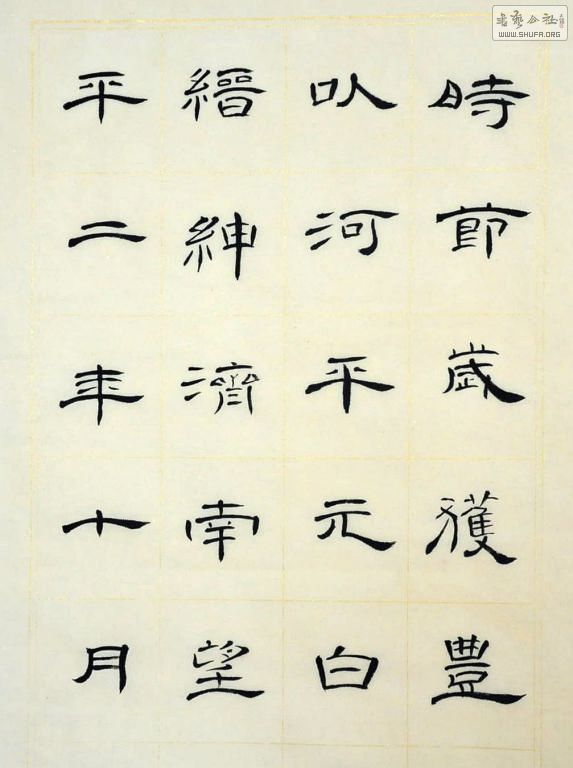 時節歲獲豊
以河平元白
縉紳濟南望
平二年十月
書藝公社
WWW.SHUFA.ORG